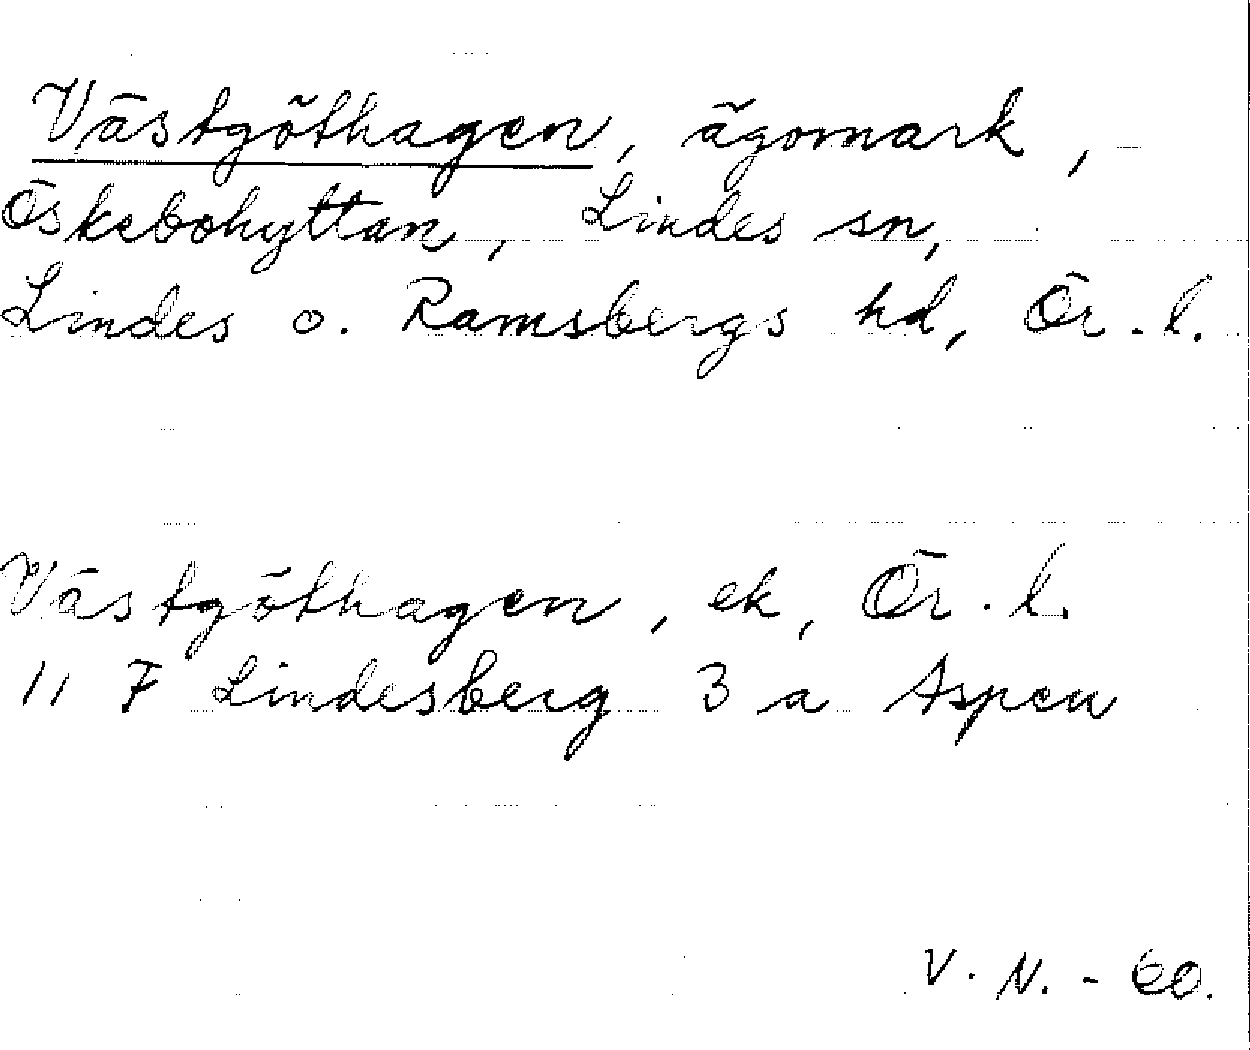 Västgöthagen, ägomark,
Öskebohyttan, Lindes sn,
Lindes o. Ramsbergs hd, Ör. l.
Västgöthagen, ek, Ör. l.
11 F Lindesberg 3 a Aspen
V. N. - 60.